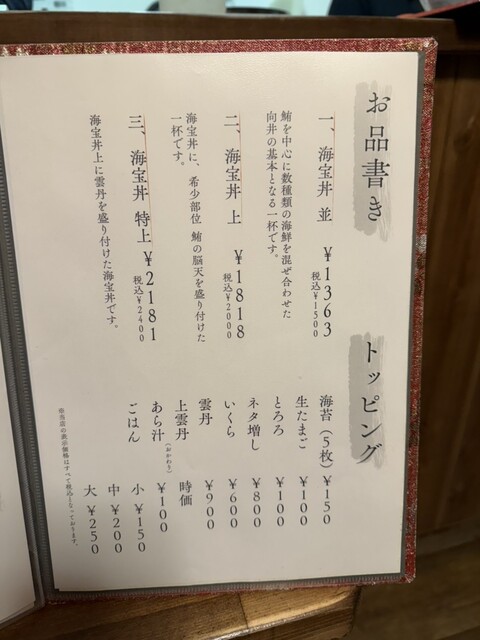 お品書き
一、海宝丼 並 ¥1363
税込¥1500
鮪を中心に数種類の海鮮を混ぜ合わせた
向井の基本となる一杯です。
二、海宝丼 上 ¥1818
税込¥2000
海宝丼に、希少部位 鮪の脳天を盛り付けた
一杯です。
三、海宝丼 特上 ¥2181
税込¥2400
海宝丼上に雲丹を盛り付けた海宝丼です。
トッピング
海苔(5枚) ¥150
生たまご ¥100
とろろ ¥100
ネタ増し ¥800
いくら ¥600
雲丹 ¥900
上雲丹 時価
あら汁(おかわり) ¥100
ごはん 小 ¥150
中 ¥200
大 ¥250
※当店の表示価格はすべて税込となっております。